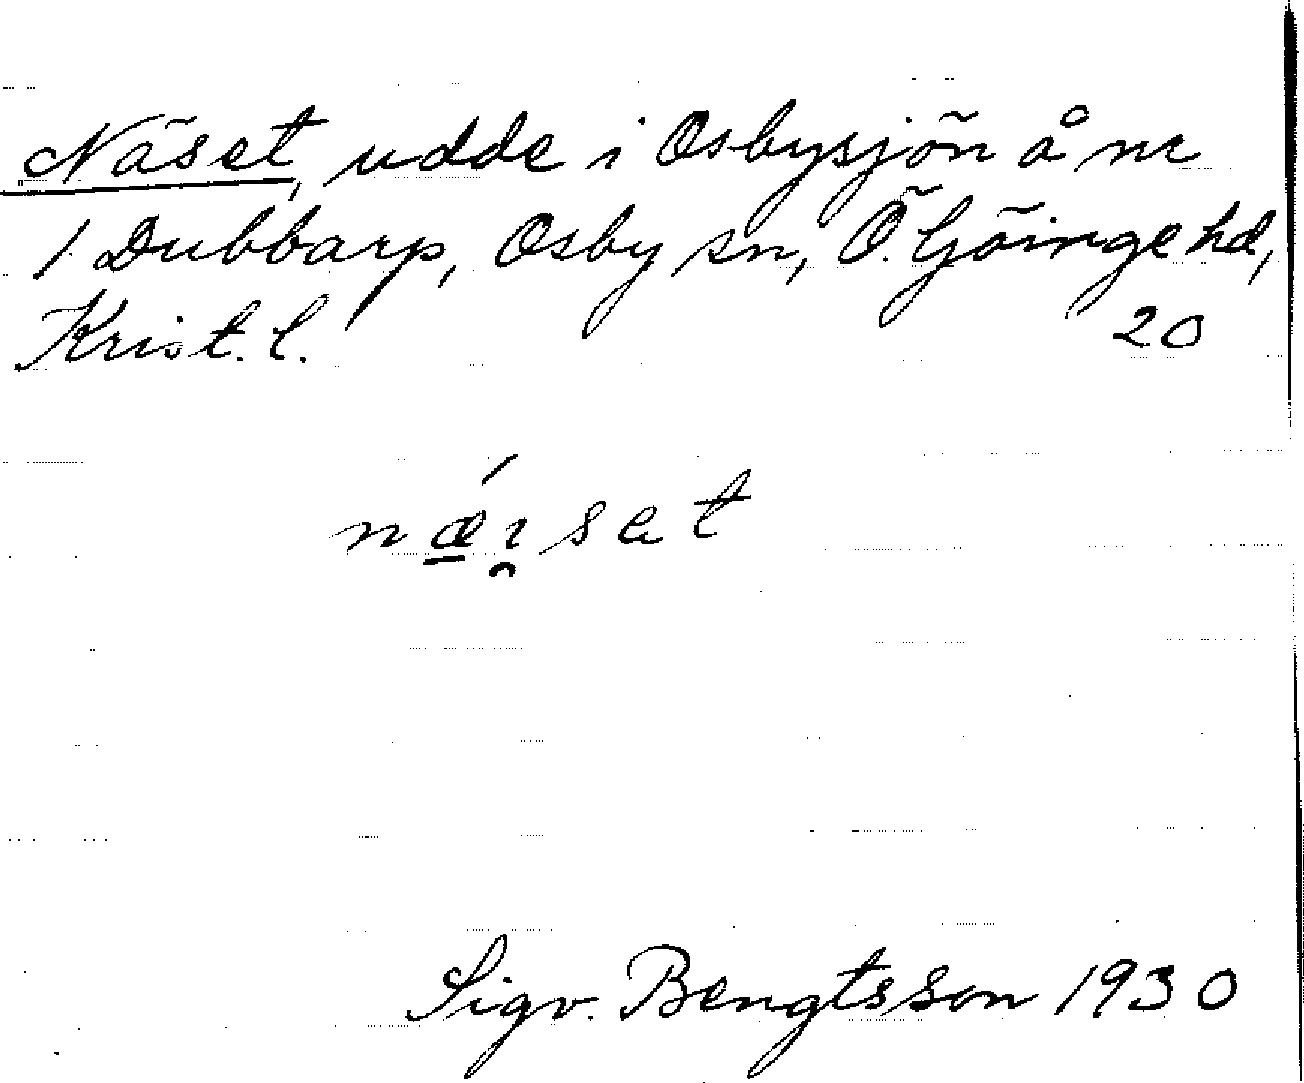 Näset, udde i Osbysjön å nr
1 Dubbarp, Osby sn, Ö. Göinge hd,
Krist. l. 20
nǽ̱ı̯sat
Sigv. Bengtsson 1930